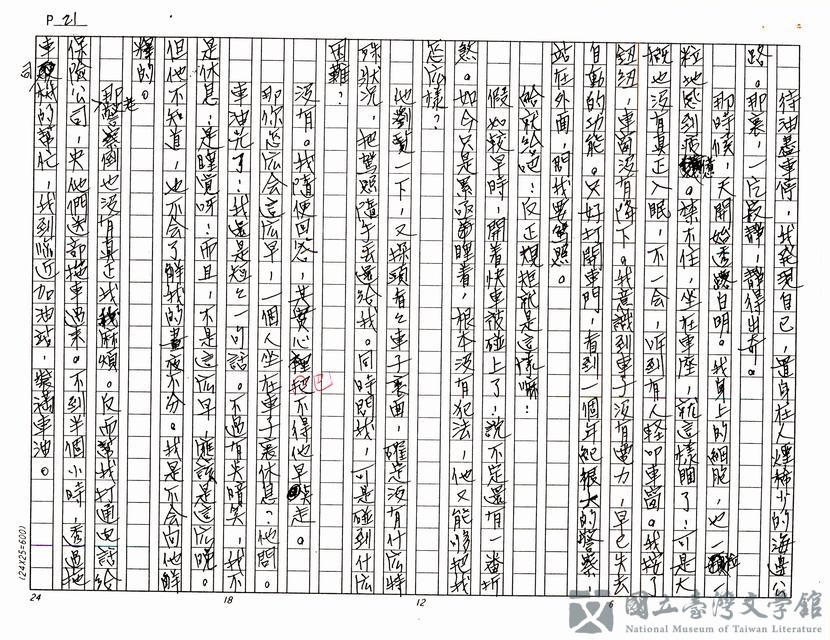 P 21
待油盡車停，我發現自己，置身在人煙稀少的海邊公
路。那裏，一片寂靜，靜得出奇。
那時候，天開始透露白明。我身上的細胞，也一粒
粒地感到疲憊。禁不住，坐在車座，就這樣睏了；可是大
概也沒有真正入眠，不一會，听到有人輕叩車窗。我按了
鈕鈕，車窗沒有降下。我意識到車子沒有電力，早已失去
自動的功能。只好打開車門，看到一個年紀很大的警察
站在外面，問我要駕照。
給就給吧；反正規矩就是這樣嘛；
假如較早時，開着快車被碰上了，說不定還有一番折
煞。如今只是累吸菌睡着，根本沒有犯法，他又能够把我
怎広樣？
他瀏覽一下，又探頭看看車子裏面，確定沒有什広特
殊狀況，把駕照隨手丢還給我。同時問我，可是碰到什広
困難？
沒有。我隨便回答，其實心裡巴不得他早點走。
那你怎広会這広早，一個人坐在車子裏休息？他問。
車油光了；我還是短短一句話。不過有矣暗笑，我不
是休息，是睡覺呀；而且，不是這広早，應該是這広晚。
但他不知道，也不会了解我的晝夜不分。我是不会向他解
釋的。
那老警察倒也沒有真正找我麻煩。反而幫我打通电話給
保險公司，央他們送部拖車過來。不到半個小時，透過拖
車司機的幫忙，我到臨近加油站，裝滿車油。
(24X25=600)
24
18
12
6
國立臺灣文學館
National Museum of Taiwan Literature